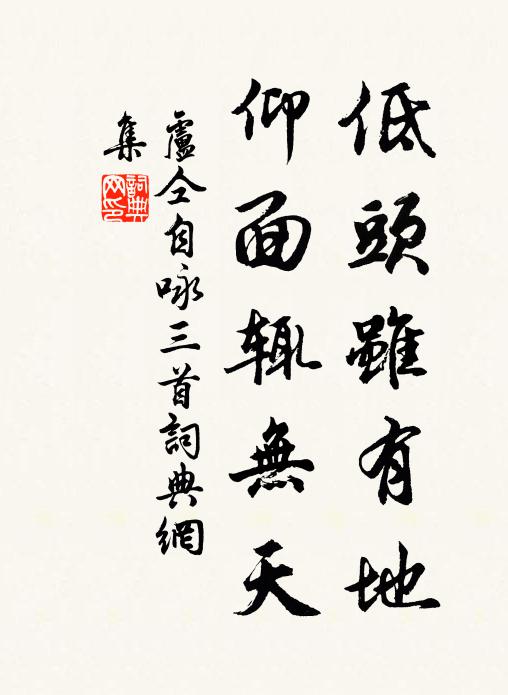 低頭雖有地
仰面辄無天
盧仝自咏三首詞典網
集
詞典
网印